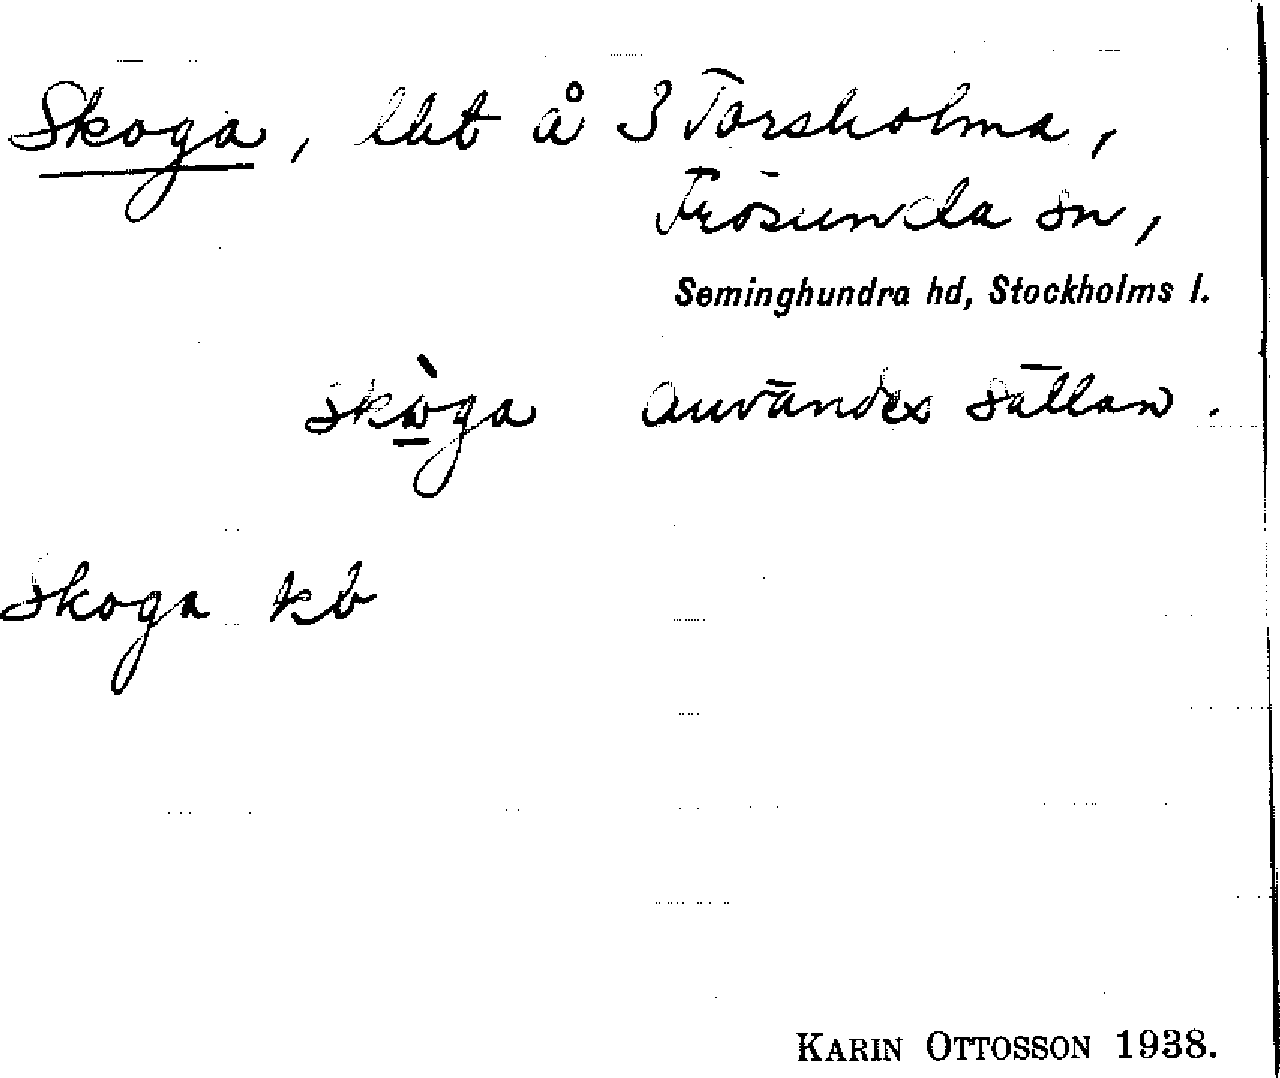 Skoga, lht å 3 Torsholma,
Frösunda sn,
Seminghundra hd, Stockholms l.
skòga användes sällan.
Skoga kb
KARIN OTTOSSON 1938.